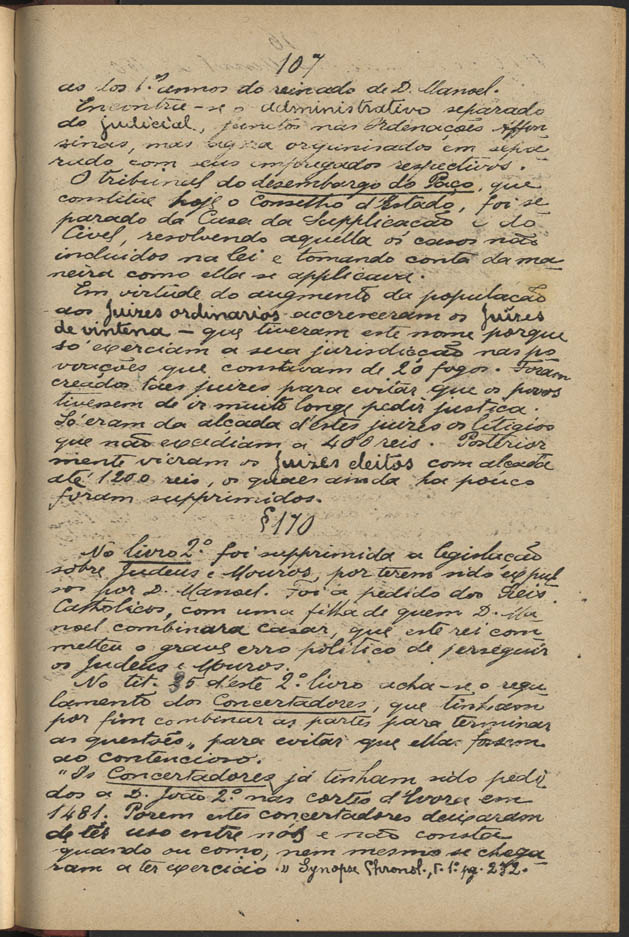 107
as los 6.os annos do reinado de D. Manoel.
Encontra-se o administrativo separado
do judicial, junctos nas Ordenações Affon
sinas, mas agora organisados em sepa
rado com seus empregados respectivos.
O tribunal do desembargo do Paço, que
constitue hoje o Conselho d'Estado, foi se
parado da Casa da Supplicação e do
Civel, resolvendo aquella os casos não
incluidos na lei e tomando conta da ma
neira como ella se applicava.
Em virtude do augmento da população
aos Juizes ordinarios accresceram os Juizes
de vintena — que tiveram este nome porque
só exerciam a sua jurisdicção nas po
voações que constavam de 20 fogos. Foram
creados taes juizes para evitar que os povos
tivessem de ir muito longe pedir justiça.
Só eram da alçada d'estes juizes os litigios
que não excediam a 400 reis. Posterior
mente vieram os Juizes eleitos com alçada
até 1200 reis, os quaes ainda ha pouco
foram supprimidos.
§ 170
No livro 2.º foi supprimida a legislação
sobre Judeus e Mouros, por terem sido expul
sos por D. Manoel. Foi a pedido dos Reis
Catholicos, com uma filha de quem D. Ma
noel combinara casar, que este rei com
metteu o grave erro politico de perseguir
os Judeus e Mouros.
No tit. 35 d'este 2.º livro acha-se o regu
lamento dos Concertadores, que tinham
por fim combinar as partes para terminar
as questões, para evitar que ellas fossem
ao contencioso.
"Os Concertadores já tinham sido pedi
dos a D. João 2.º nas cortes d'Evora em
1481. Porem estes concertadores deixaram
de ter uso entre nós e não consta
quando ou como, nem mesmo se chega
ram a ter exercicio." Synopse Chronol., t. 1.º pg. 272.